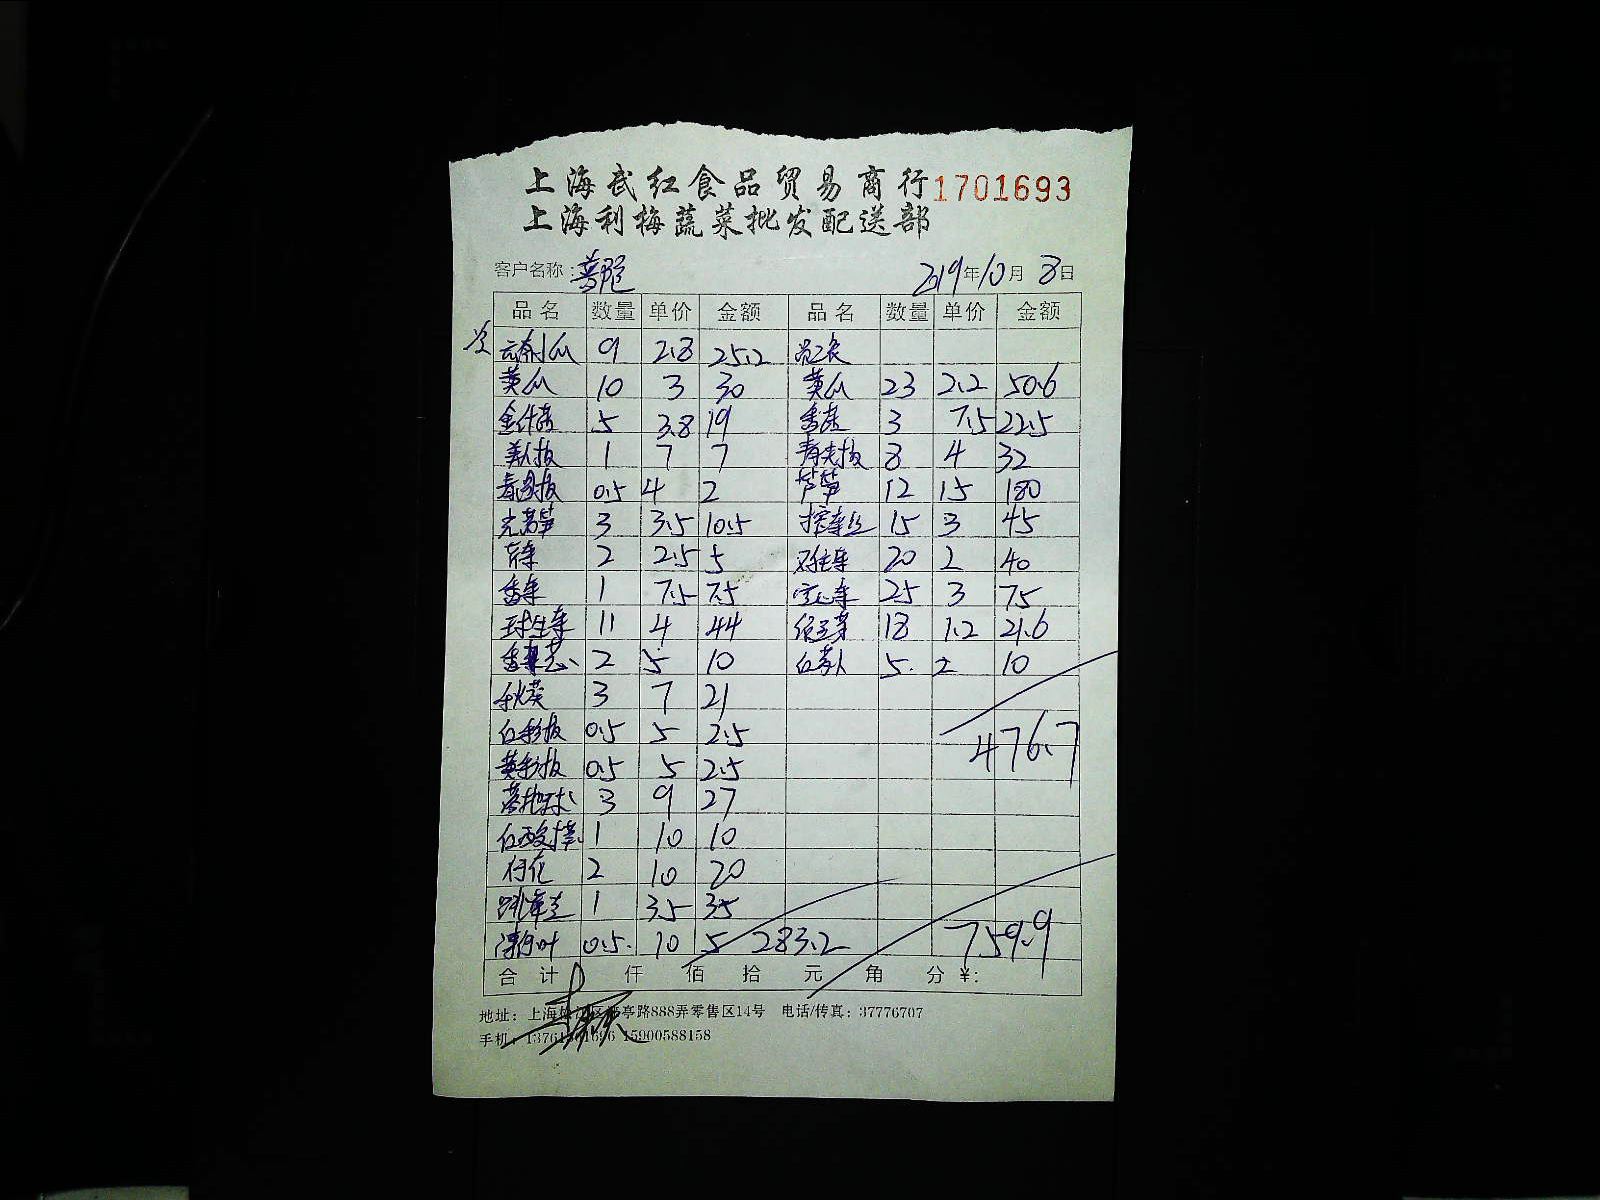 上海武红食品贸易商行 1701693
上海利梅蔬菜批发配送部
客户名称： 2019年10月8日
品名 数量 单价 金额 品名 数量 单价 金额
9 2.8 25.2
黄瓜 10 3 30 黄瓜 23 2.2 50.6
金针菇 5 3.8 19 香菇 3 7.5 22.5
美人椒 1 7 7 青尖椒 8 4 32
青圆椒 0.5 4 2 芦笋 12 15 180
莴笋 3 3.5 10.5 榨菜丝 15 3 45
2 2.5 5 20 2 40
香菜 1 7.5 7.5 25 3 75
球生菜 11 4 44 绿豆芽 18 1.2 21.6
2 5 10 红萝卜 5. 2 10
秋葵 3 7 21
红彩椒 0.5 5 2.5 476.7
黄彩椒 0.5 5 2.5
3 9 27
1 10 10
2 10 20
1 3.5 3.5
0.5. 10 5 283.2 759.9
合计 仟 佰 拾 元 角 分 ¥:
地址：上海 区 亭路888弄零售区14号 电话/传真：37776707
手机： 15900588158